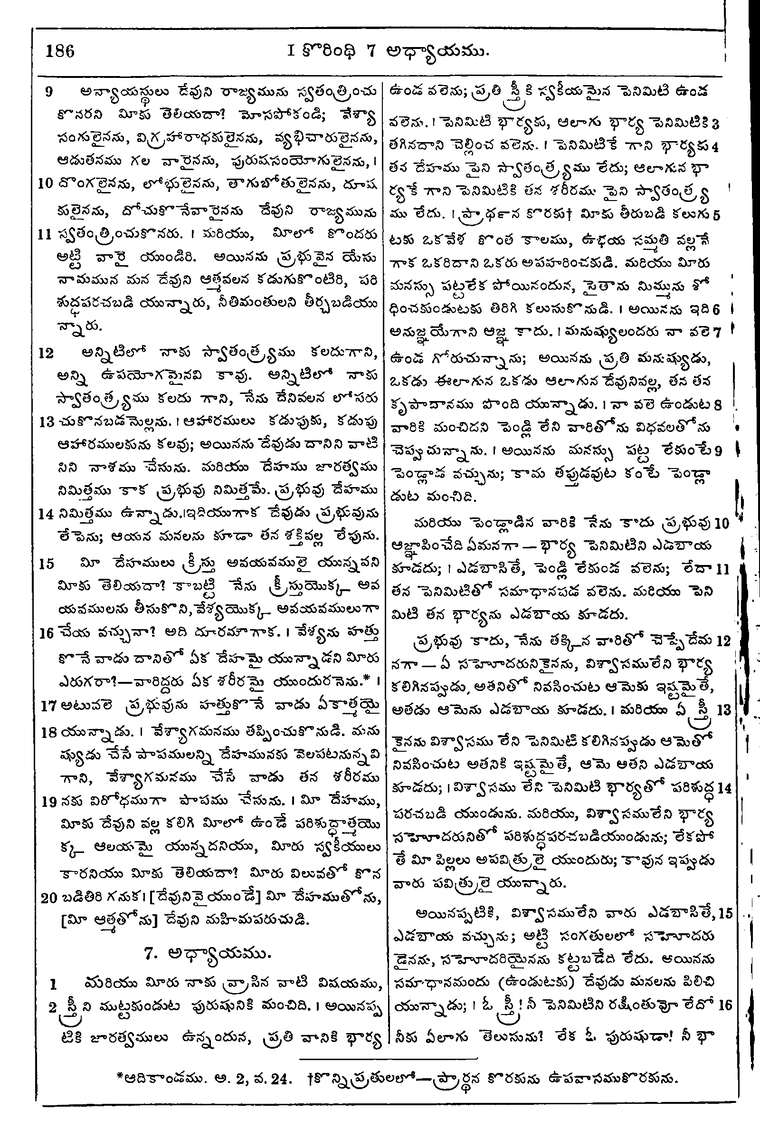 186 I కొరింథి 7 అధ్యాయము.
9 అన్యాయస్థులు దేవుని రాజ్యమును స్వతంత్రించు
కొనరని మీకు తెలియదా? మోసపోకండి; వేశ్యా
సంగులైనను, విగ్రహారాధకులైనను, వ్యభిచారులైనను,
ఆడుతనము గల వారైనను, పురుషసంయోగులైనను, ।
10 దొంగలైనను, లోభులైనను, తాగుబోతులైనను, దూష
కులైనను, దోచుకొనేవారైనను దేవుని రాజ్యమును
11 స్వతంత్రించుకొనరు. । మరియు, మీలో కొందరు
అట్టి వారై యుండిరి. అయినను ప్రభువైన యేసు
నామమున మన దేవుని ఆత్మవలన కడుగుకొంటిరి, పరి
శుద్ధపరచబడి యున్నారు, నీతిమంతులని తీర్చబడియు
న్నారు.
12 అన్నిటిలో నాకు స్వాతంత్ర్యము కలదుగాని,
అన్ని ఉపయోగమైనవి కావు. అన్నిటిలో నాకు
స్వాతంత్ర్యము కలదు గాని, నేను దేనివలన లోపరు
13 చుకొనబడమెల్లను. । ఆహారములు కడుపుకు, కడుపు
ఆహారములకును కలవు; అయినను దేవుడు దానిని వాటి
నిని నాశము చేసును. మరియు దేహము జారత్వము
నిమిత్తము కాక ప్రభువు నిమిత్తమే. ప్రభువు దేహము
14 నిమిత్తము ఉన్నాడు.।ఇదియుగాక దేవుడు ప్రభువును
లేపెను; ఆయన మనలను కూడా తన శక్తివల్ల లేపును.
15 మీ దేహములు క్రీస్తు అవయవములై యున్నవని
మీకు తెలియదా? కాబట్టి నేను క్రీస్తుయొక్క అవ
యవములను తీసుకొని, వేశ్యయొక్క అవయవములుగా
16 చేయ వచ్చునా? అది దూరమౌగాక. । వేశ్యను హత్తు
కొనే వాడు దానితో ఏక దేహమై యున్నాడని మీరు
ఎరుగరా?—వారిద్దరు ఏక శరీరమై యుందురనెను.* ।
17 అటువలె ప్రభువును హత్తుకొనే వాడు ఏకాత్మయై
18 యున్నాడు. । వేశ్యాగమనము తప్పించుకొనుడి. మను
ష్యుడు చేసే పాపములన్ని దేహమునకు వెలపటనున్నవి
గాని, వేశ్యాగమనము చేసే వాడు తన శరీరము
19 నకు విరోధముగా పాపము చేసును. । మీ దేహము,
మీకు దేవుని వల్ల కలిగి మీలో ఉండే పరిశుద్ధాత్మయొ
క్క ఆలయమై యున్నదనియు, మీరు స్వకీయులు
కారనియు మీకు తెలియదా? మీరు విలువతో కొన
20 బడితిరి గనుక। [దేవునివై యుండే] మీ దేహముతోను,
[మీ ఆత్మతోను] దేవుని మహిమపరుచుడి.
7. అధ్యాయము.
1 మరియు మీరు నాకు వ్రాసిన వాటి విషయము,
2 స్త్రీని ముట్టకుండుట పురుషునికి మంచిది. । అయినప్ప
టికి జారత్వములు ఉన్నందున, ప్రతి వానికి భార్య
ఉండ వలెను; ప్రతి స్త్రీకి స్వకీయమైన పెనిమిటి ఉండ
వలెను. । పెనిమిటి భార్యకు, ఆలాగు భార్య పెనిమిటికి 3
తగినదాని చెల్లించ వలెను. । పెనిమిటికే గాని భార్యకు 4
తన దేహము పైని స్వాతంత్ర్యము లేదు; ఆలాగున భా
ర్యకే గాని పెనిమిటికి తన శరీరము పైని స్వాతంత్ర్య
ము లేదు. । ప్రార్థన కొరకు† మీకు తీరుబడి కలుగు 5
టకు ఒకవేళ కొంత కాలము, ఉభయ సమ్మతి వల్లనే
గాక ఒకరిదాని ఒకరు అపహరించకుడి. మరియు మీరు
మనస్సు పట్టలేక పోయినందున, సైతాను మిమ్మును శో
ధించకుండుటకు తిరిగి కలుసుకొనుడి. । అయినను ఇది 6
అనుజ్ఞయేగాని ఆజ్ఞ కాదు. । మనుష్యులందరు నా వలె 7
ఉండ గోరుచున్నాను; అయినను ప్రతి మనుష్యుడు,
ఒకడు ఈలాగున ఒకడు ఆలాగున దేవునివల్ల, తన తన
కృపాదానము పొంది యున్నాడు. । నా వలె ఉండుట 8
వారికి మంచిదని పెండ్లి లేని వారితోను విధవలతోను
చెప్పుచున్నాను. । అయినను మనస్సు పట్ట లేకుంటే 9
పెండ్లాడ వచ్చును; కామ తప్తుడవుట కంటే పెండ్లా
డుట మంచిది.
మరియు పెండ్లాడిన వారికి నేను కాదు ప్రభువు 10
ఆజ్ఞాపించేది ఏమనగా — భార్య పెనిమిటిని ఎడబాయ
కూడదు; । ఎడబాసితే, పెండ్లి లేకుండ వలెను; లేదా 11
తన పెనిమిటితో సమాధానపడ వలెను. మరియు పెని
మిటి తన భార్యను ఎడబాయ కూడదు.
ప్రభువు కాదు, నేను తక్కిన వారితో చెప్పేదేమ 12
నగా — ఏ సహోదరునికైనను, విశ్వాసములేని భార్య
కలిగినప్పుడు, అతనితో నివసించుట ఆమెకు ఇష్టమైతే,
అతడు ఆమెను ఎడబాయ కూడదు. । మరియు ఏ స్త్రీ 13
కైనను విశ్వాసము లేని పెనిమిటి కలిగినప్పుడు ఆమెతో
నివసించుట అతనికి ఇష్టమైతే, ఆమె ఆతని ఎడబాయ
కూడదు; । విశ్వాసము లేని పెనిమిటి భార్యతో పరిశుద్ధ 14
పరచబడి యుండును. మరియు, విశ్వాసములేని భార్య
సహోదరునితో పరిశుద్ధపరచబడియుండును; లేకపో
తే మీ పిల్లలు అపవిత్రులై యుందురు; కావున ఇప్పుడు
వారు పవిత్రులై యున్నారు.
అయినప్పటికి, విశ్వాసములేని వారు ఎడబాసితే, 15
ఎడబాయ వచ్చును; అట్టి సంగతులలో సహోదరు
డైనను, సహోదరియైనను కట్టబడేది లేదు. అయినను
సమాధానమందు (ఉండుటకు) దేవుడు మనలను పిలిచి
యున్నాడు; । ఓ స్త్రీ! నీ పెనిమిటిని రక్షింతువో లేదో 16
నీకు ఏలాగు తెలుసును? లేక ఓ పురుషుడా! నీ భా
*ఆదికాండము. అ. 2, వ. 24. †కొన్ని ప్రతులలో—ప్రార్థన కొరకును ఉపవాసముకొరకును.